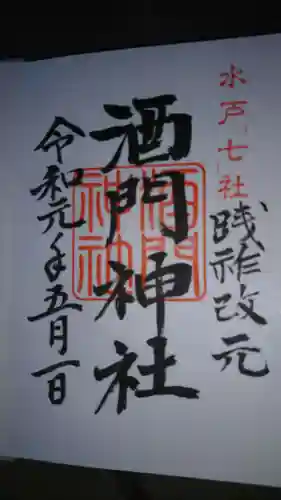 水戸「七」社
践祚改元
酒門神社
酒門
神社
令和元年五月一日